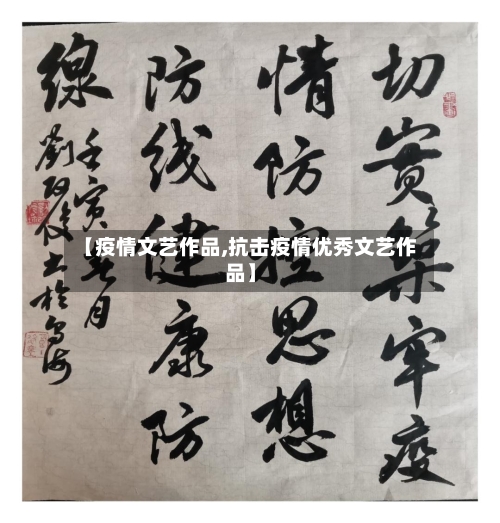 切实筑牢疫
情防控思想
防线健康防
線
壬寅春月
劉 俊书於乌海
【疫情文艺作品,抗击疫情优秀文艺作
品】